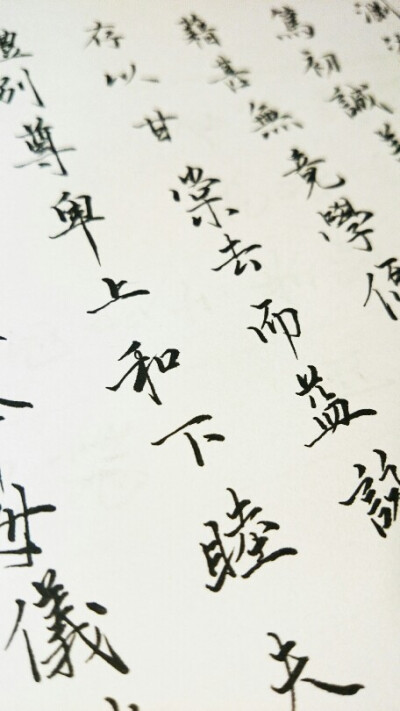 篤初誠美
籍甚無竟學優
存以甘棠去而益詠
別尊卑上和下睦夫
母儀